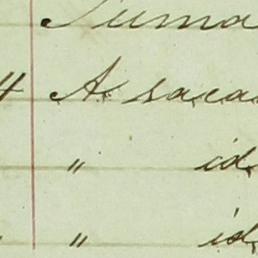 Suma
4 A saca
" id
" id